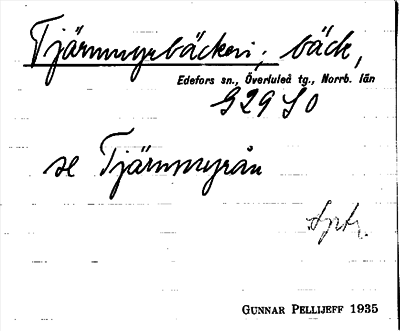 Tjärnmyrbäcken; bäck,
Edefors sn., Överluleå tg., Norrb. län
G29 SO
se Tjärnmyrån
GUNNAR PELLIJEFF 1935